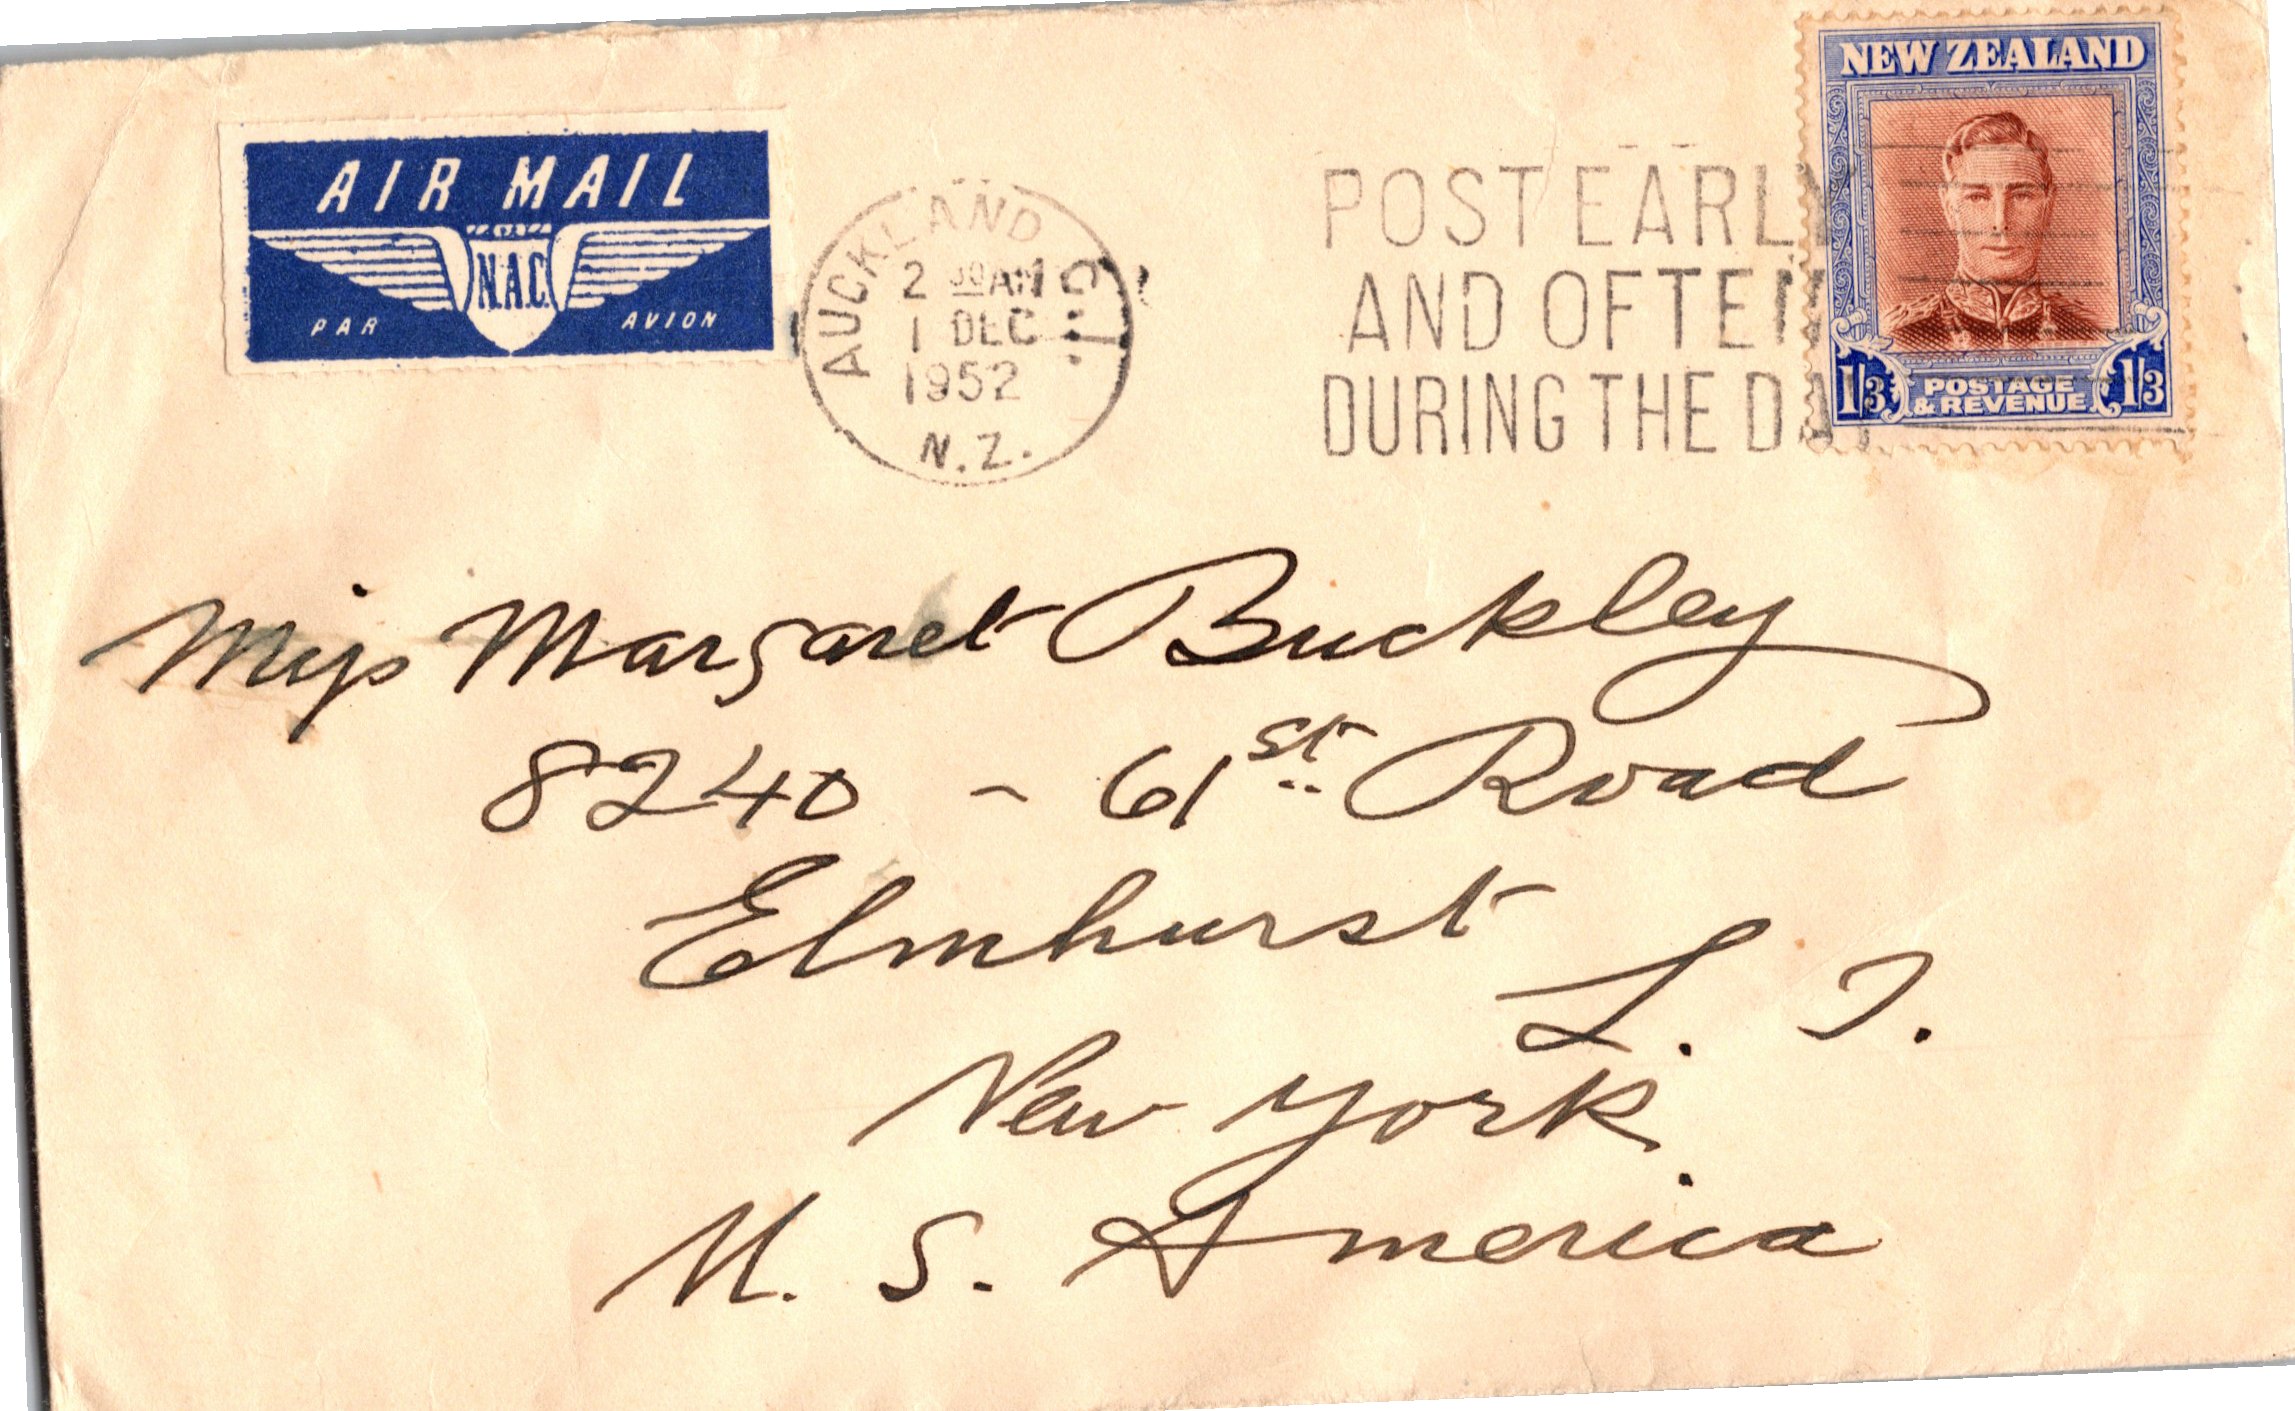 AIR MAIL
N.A.C.
PAR AVION
AUCKLAND C.1.
2 30 AM
1 DEC
1952
N.Z.
POST EARLY
AND OFTEN
DURING THE DAY
NEW ZEALAND
1/3 POSTAGE & REVENUE 1/3
Miss Margaret Buckley
8240 - 61st Road
Elmhurst
L. I.
New York
U. S. America